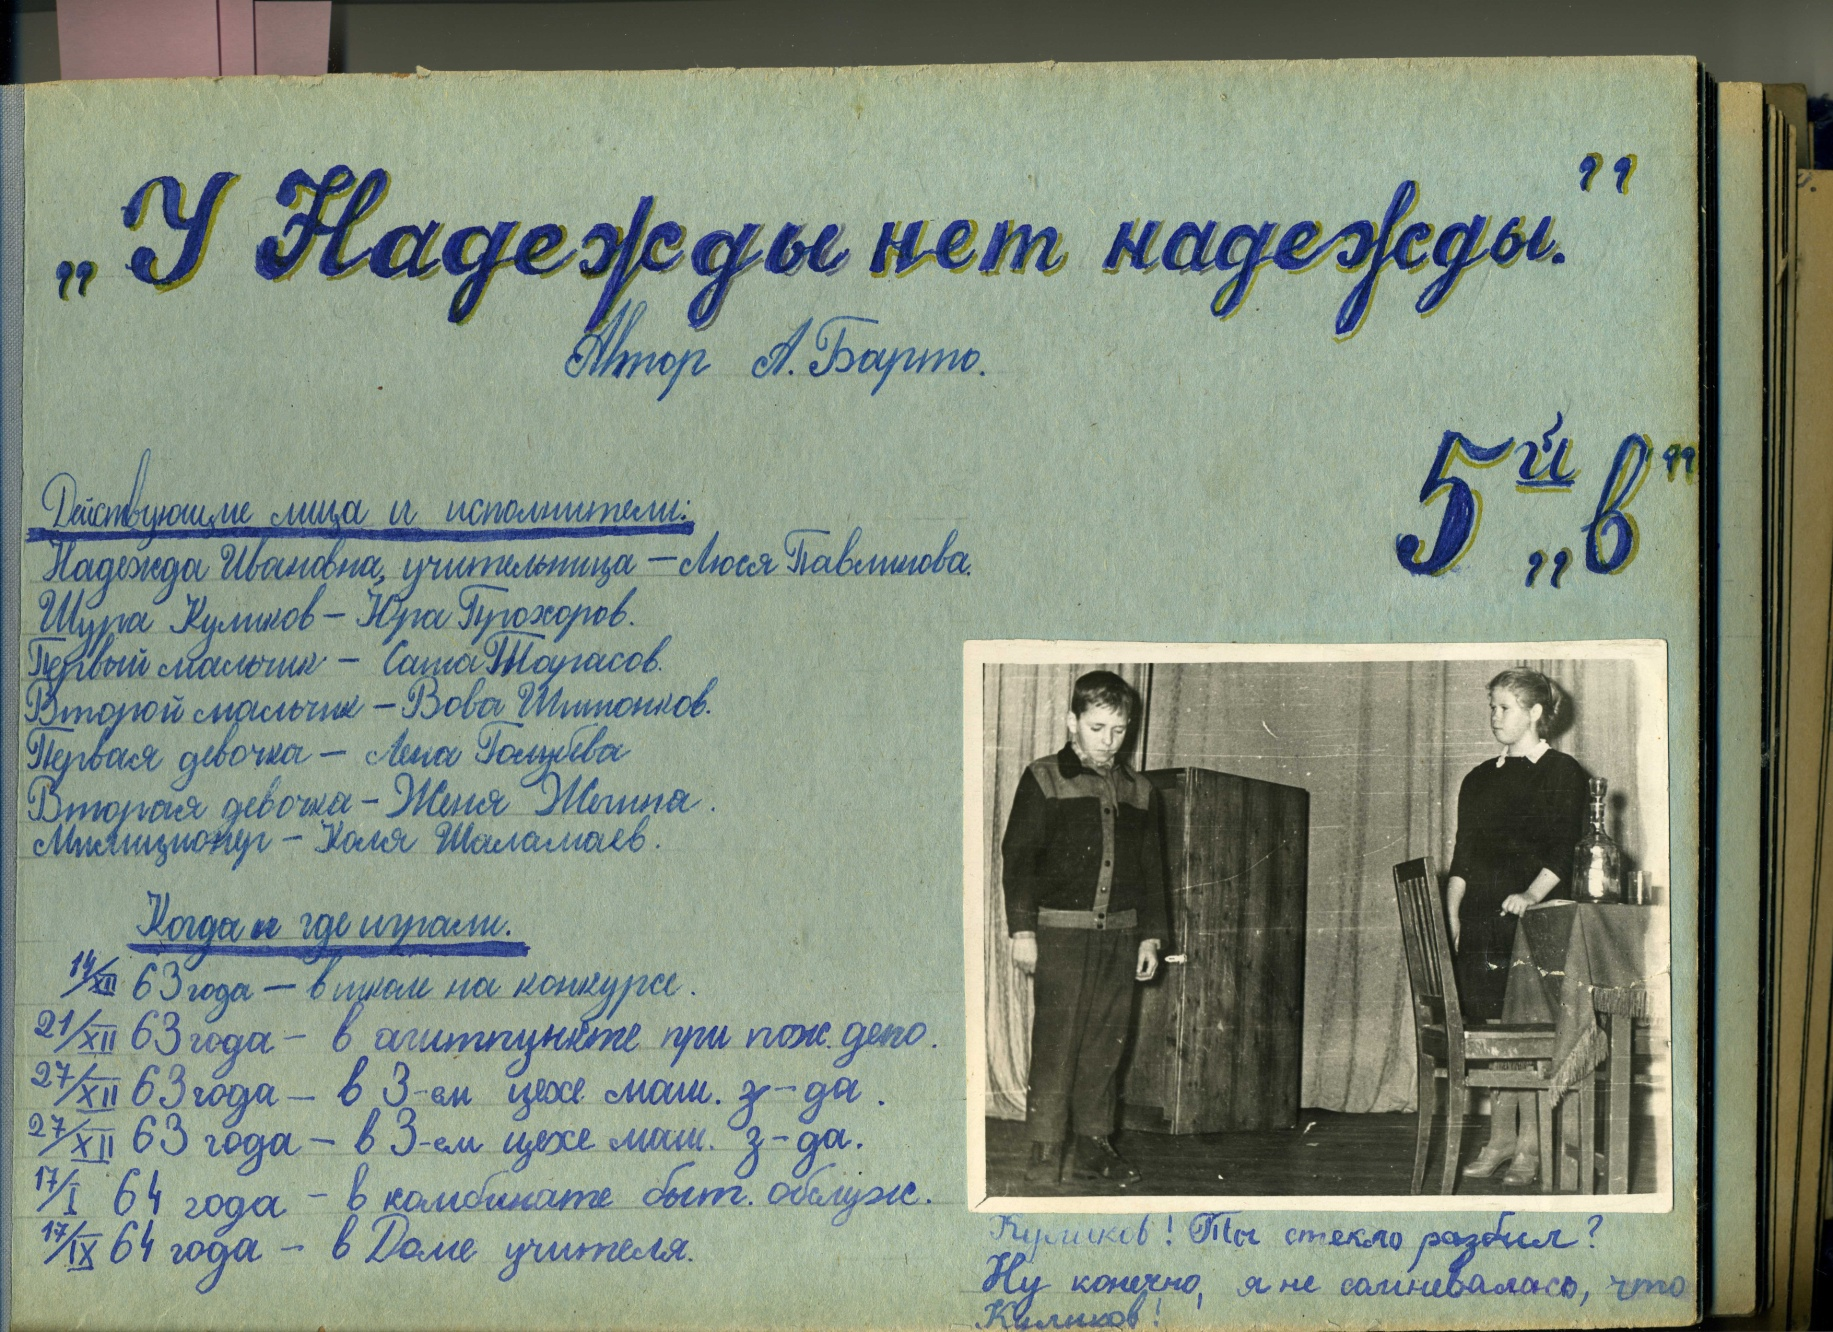 „У Надежды нет надежды."
Автор А. Барто.
5й „в"
Действующие лица и исполнители:
Надежда Ивановна, учительница — Люся Павлинова.
Шура Куликов — Юра Прохоров.
Первый мальчик — Саша Тарасов.
Второй мальчик — Вова Шитонков.
Первая девочка — Лена Голубева
Вторая девочка — Женя Жегина.
Милиционер — Коля Шаламаев.
Когда и где играли.
14/XII 63 года — в школе на конкурсе.
21/XII 63 года — в агитпункте при пож. депо.
27/XII 63 года — в 3-ем цехе маш. з-да.
27/XII 63 года — в 3-ем цехе маш. з-да.
17/I 64 года — в комбинате быт. обслуж.
17/IX 64 года — в Доме учителя.
Куликов! Ты стекло разбил?
Ну конечно, я не сомневалась, что
Куликов!